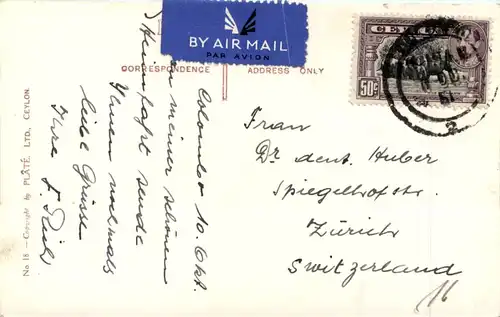 BY AIR MAIL
PAR AVION
CEYLON
50c
CORRESPONDENCE
ADDRESS ONLY
Colombo 10. Okt.
von meiner schönen
Heimfahrt sende
Ihnen nochmals
liebe Grüsse
Ihre
Frau
Dr dent. Huber
Spiegelhofstr.
Zürich
Switzerland
No. 18 — Copyright by PLÂTÉ, LTD., CEYLON.